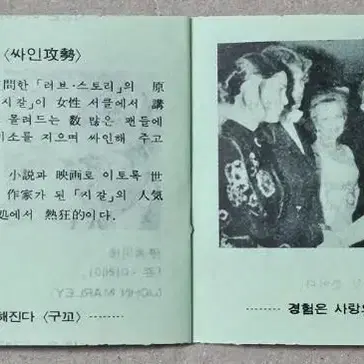 〈싸인攻勢〉
問한 「러브·스토리」의 原
시갈」이 女性 서클에서 講
몰려드는 数 많은 팬들에
미소를 지으며 싸인해 주고
小説과 映画로 이토록 世
作家가 된 「시갈」의 人気
処에서 熱狂的이다.
해진다 〈구꼬〉 --------
-------- 경험은 사랑의